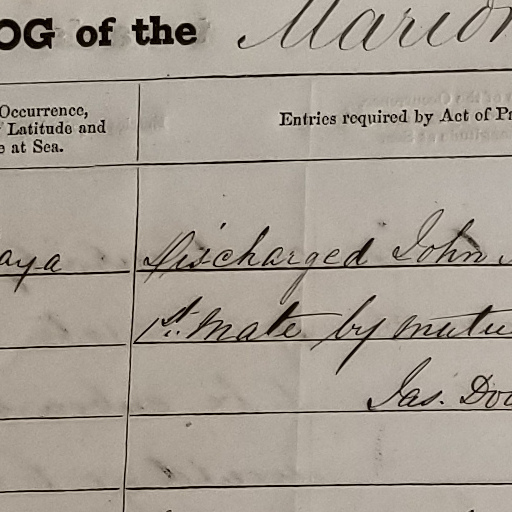 OG of the Marion
Occurrence,
Latitude and
e at Sea.
Entries required by Act of P
aya Discharged John
1st. Mate by mutu
Jas. Do